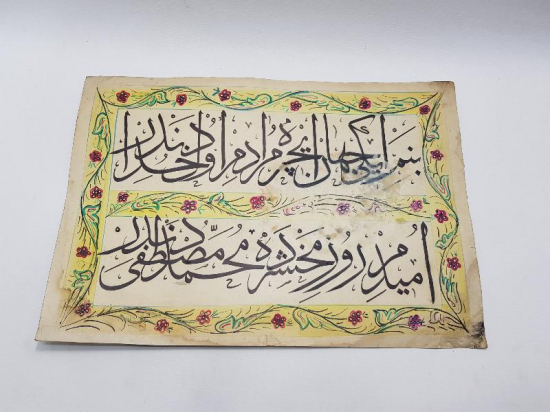 بنم ایکی جهان ایچره مرادم اول خدادندر
امیدم روز محشرده محمد مصطفی دندر